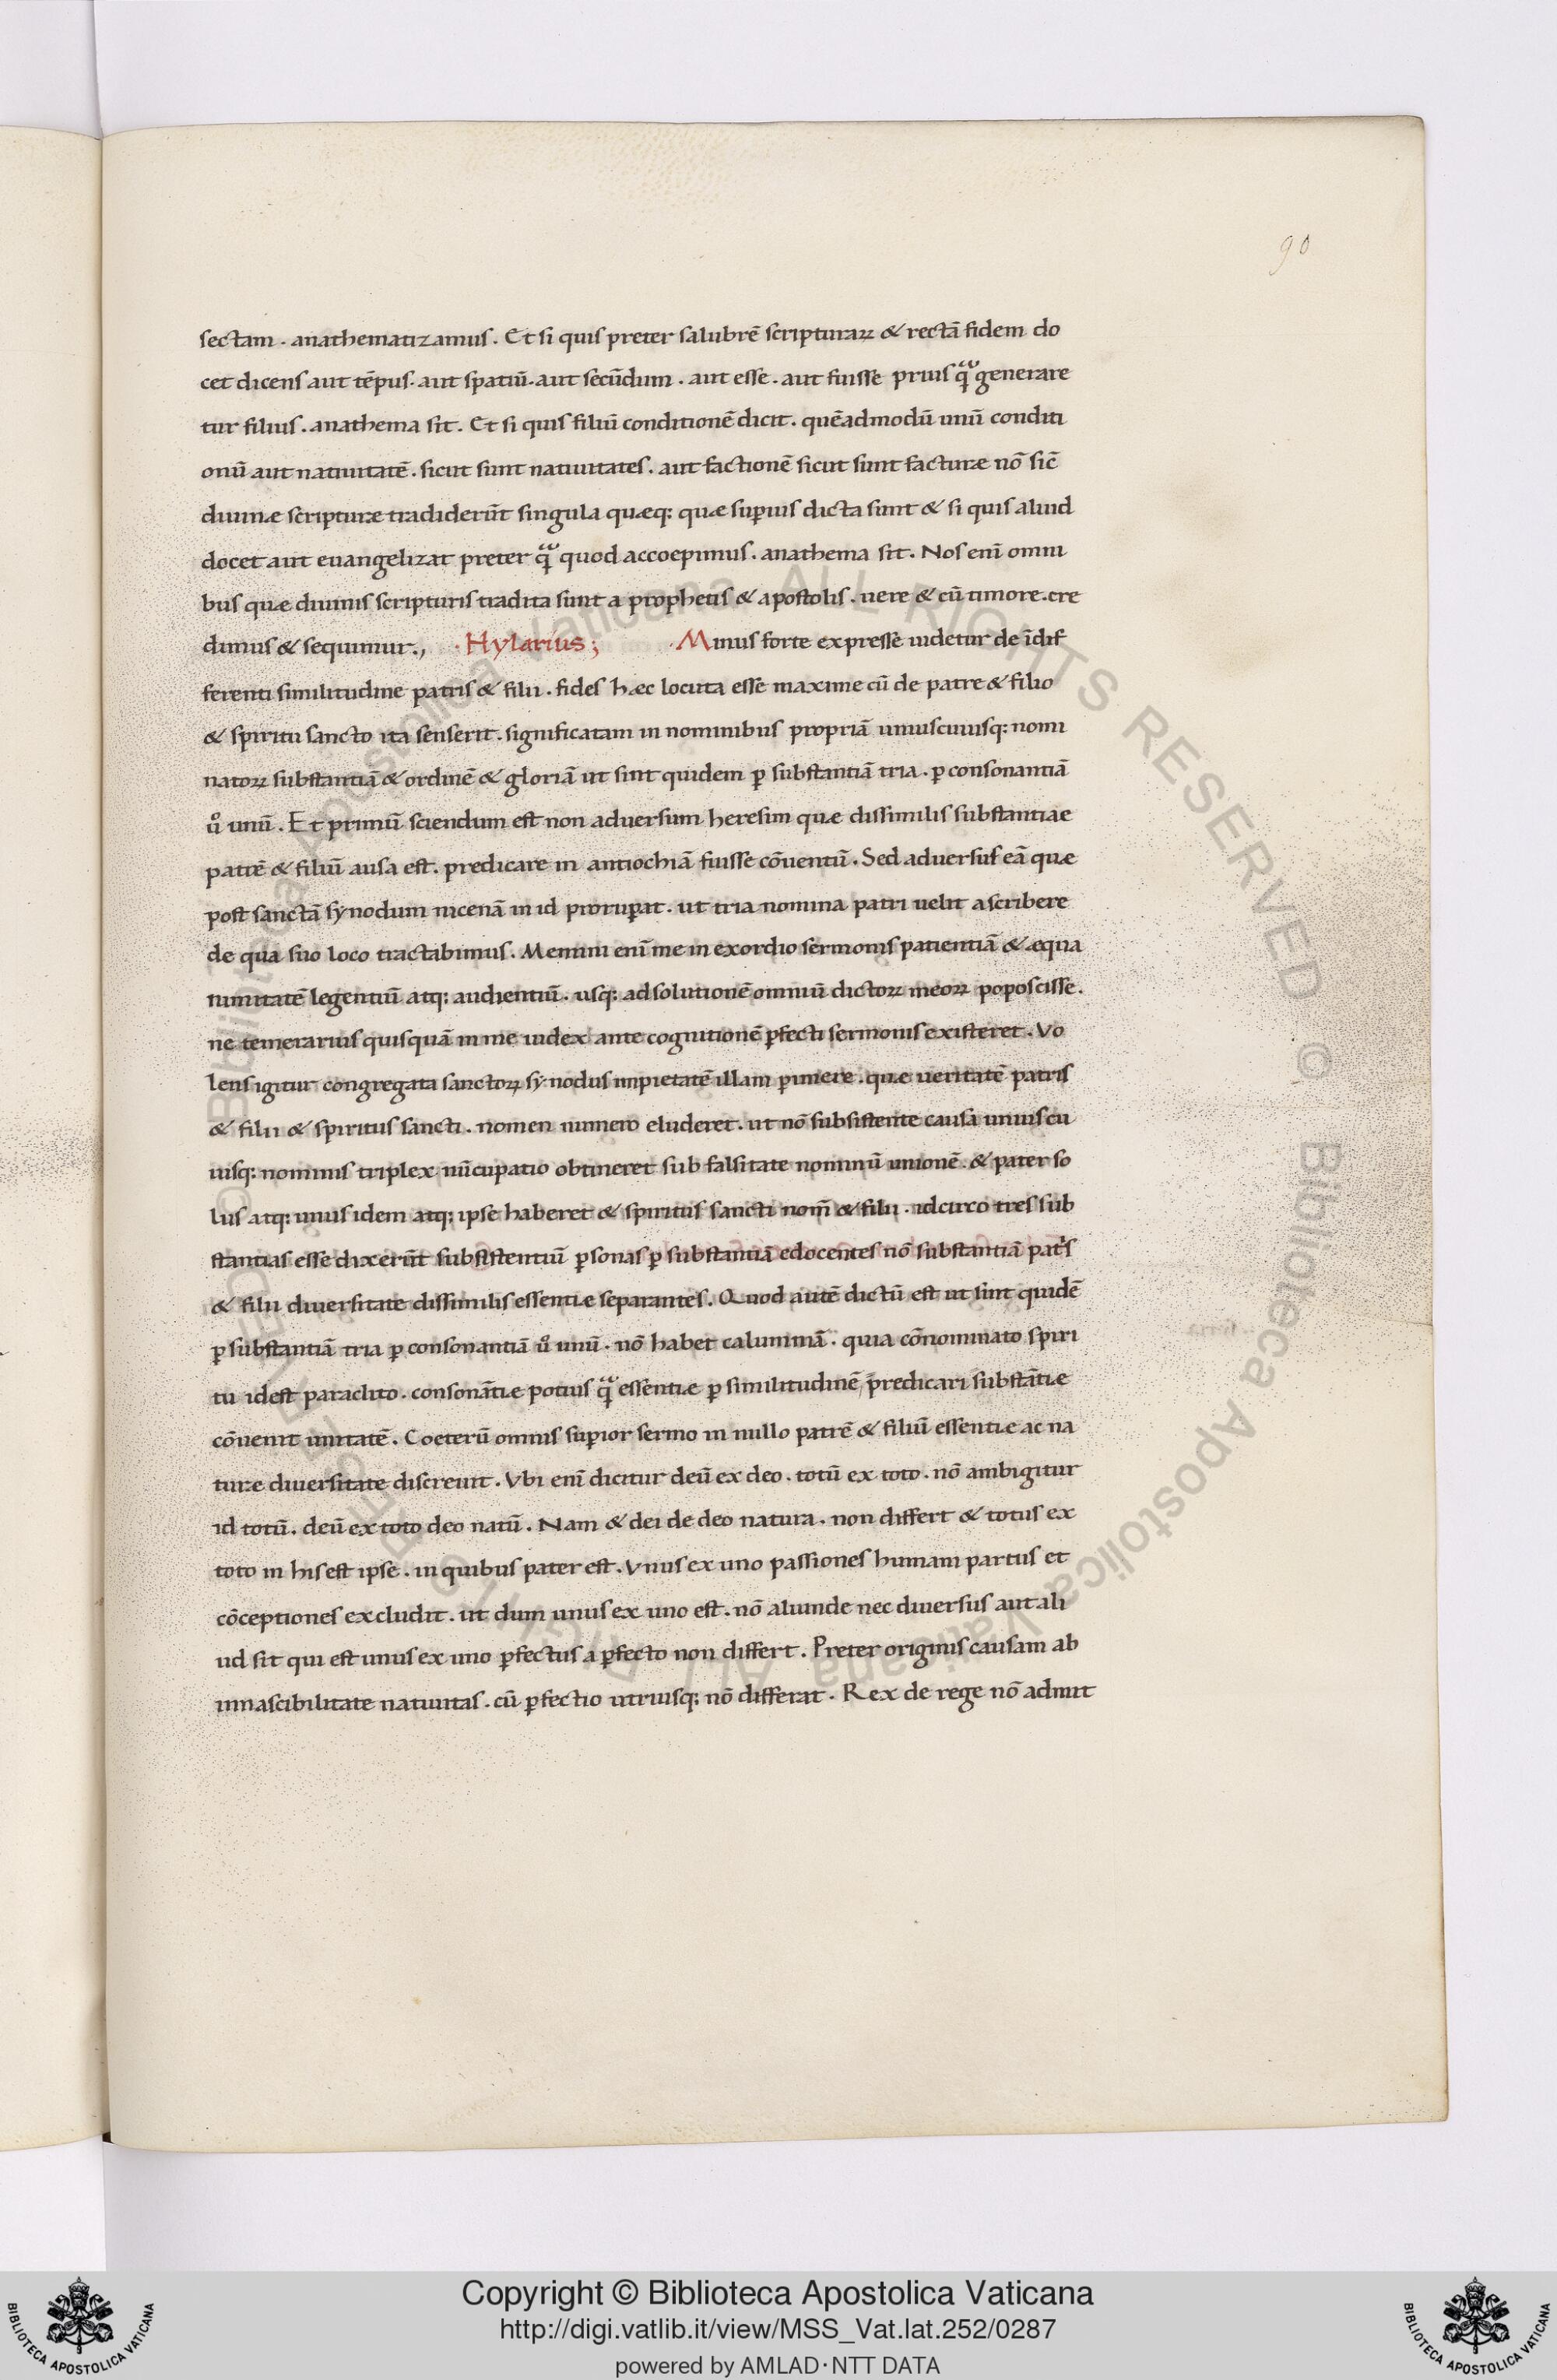 90
sectam . anathematizamus . Et si quis preter salubrē scripturaꝝ & rectā fidem do
cet dicens aut tēpus . aut spatiū . aut secūdum . aut esse . aut fuisse prius qͣ̄ generare
tur filius . anathema sit . Et si quis filiū conditionē dicit . quēadmodū unū conditi
onū aut natiuitatē . sicut sunt natiuitates . aut factionē sicut sunt facturæ nō sic̄
diuinæ scripturæ tradiderūt singula quæq: quæ suꝑius dicta sunt & si quis aliud
docet aut euangelizat preter qͣ̄ quod accoepimus . anathema sit . Nos enī omni
bus quæ diuinis scripturis tradita sunt a prophetis & apostolis . uere & cū timore . cre
dimus & sequimur ., · Hylarius ; · Minus forte expresse uidetur de īdif
ferenti similitudine patris & filii . fides hæc locuta esse maxime cū de patre & filio
& spiritu sancto ita senserit . significatam in nominibus propriā uniuscuiusq: nomi
natoꝝ substantiā & ordinē & gloriā ut sint quidem ꝑ substantiā tria . ꝑ consonantiā
uͦ unū . Et primū sciendum est non aduersum heresim quæ dissimilis substantiae
patrē & filiū ausa est . predicare in antiochiā fuisse cōuentū . Sed aduersus eā quæ
post sanctā synodum nicenā in id proruꝑat . ut tria nomina patri uelit ascribere
de qua suo loco tractabimus . Memini enī me in exordio sermonis patientiā & æqua
nimitatē legentiū atq: audientiū . usq: ad solutionē omniū dictoꝝ meoꝝ poposcisse .
ne temerarius quisquā in me iudex ante cognitionē ꝑfecti sermonis existeret . Vo
lens igitur congregata sanctoꝝ synodus impietatē illam ꝑimere . quæ ueritatē patris
& filii & spiritus sancti . nomen numero eluderet . ut nō subsistente causa uniuscu
iusq: nominis triplex nūcupatio obtineret sub falsitate nominū unionē . & pater so
lus atq: unus idem atq: ipse haberet & spiritus sancti nom̄ & filii . idcirco tres sub
stantias esse dixerūt subsistentiū ꝑsonas ꝑ substantiā edocentes nō substantiā patͥs
& filii diuersitate dissimilis essentiæ separantes . Quod autē dictū est ut sint quidē
ꝑ substantiā tria ꝑ consonantiā uͦ unū . nō habet calumniā . quia cōnominato spiri
tu idest paraclito . consonātiæ potius qͣ̄ essentiæ ꝑ similitudinē predicari substātiæ
cōuenit unitatē . Coeterū omnis suꝑior sermo in nullo patrē & filiū essentiæ ac na
turæ diuersitate discreuit . Vbi enī dicitur deū ex deo . totū ex toto . nō ambigitur
id totū . deū ex toto deo natū . Nam & dei de deo natura . non differt & totus ex
toto in his est ipse . in quibus pater est . Vnus ex uno passiones humani partus et
cōceptiones excludit . ut dum unus ex uno est . nō aliunde nec diuersus aut ali
ud sit qui est unus ex uno ꝑfectus a ꝑfecto non differt . Preter originis causam ab
innascibilitate natiuitas . cū ꝑfectio utriusq: nō differat . Rex de rege nō admit
© Biblioteca Apostolica Vaticana ALL RIGHTS RESERVED © Biblioteca Apostolica Vaticana ALL RIGHTS RESERVED
Copyright © Biblioteca Apostolica Vaticana
http://digi.vatlib.it/view/MSS_Vat.lat.252/0287
powered by AMLAD · NTT DATA
BIBLIOTECA APOSTOLICA VATICANA
BIBLIOTECA APOSTOLICA VATICANA